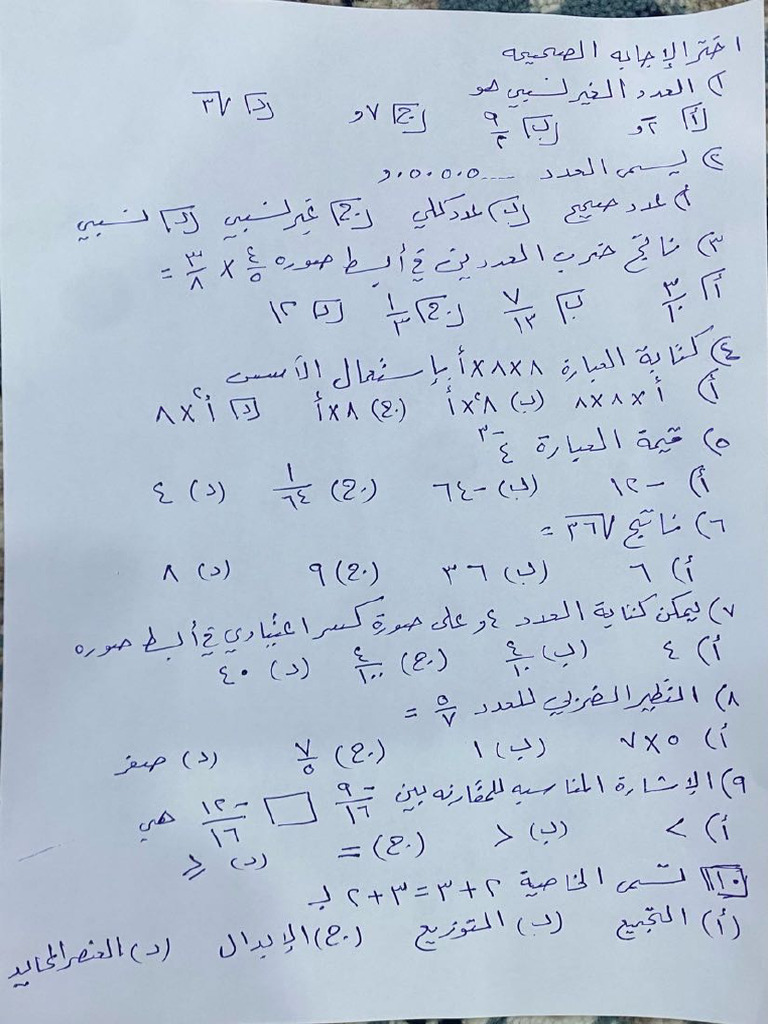 اختر الإجابه الصحيحه
١) العدد الغير نسبي هو
أ) ٢و ب) ٩/٢ ج) ٧و د) √٣
٢) يسمى العدد ....٠٫٥٠٥٠٥٠
أ) عدد صحيح ب) عدد كلي ج) غير نسبي د) نسبي
٣) ناتج ضرب العددين في أبسط صوره ٤/٥ × ٣/٨ =
أ) ٣/١٠ ب) ٧/١٣ ج) ١/٣ د) ١٢
٤) كتابة العبارة ٨×٨×أ بإستعمال الأسس
أ) أ×٨×٨ ب) ٨²×أ ج) ٨×أ د) أ²×٨
٥) قيمة العبارة ٤⁻³
أ) -١٢ ب) -٦٤ ج) ١/٦٤ د) ٤
٦) ناتج √٣٦ =
أ) ٦ ب) ٣٦ ج) ٩ د) ٨
٧) يمكن كتابة العدد ٤و على صورة كسر اعتيادي في أبسط صوره
أ) ٤ ب) ٤/١٠ ج) ٤/١٠٠ د) ٤٠
٨) النظير الضربي للعدد ٥/٧ =
أ) ٥×٧ ب) ١ ج) ٧/٥ د) صفر
٩) الإشارة المناسبه للمقارنه بين -٩/١٦ □ -١٢/١٦ هي
أ) > ب) < ج) = د) ≥
١٠) تسمى الخاصية ٢+٣=٣+٢ بـ
(أ) التجميع (ب) التوزيع (ج) الإبدال (د) العنصر المحايد